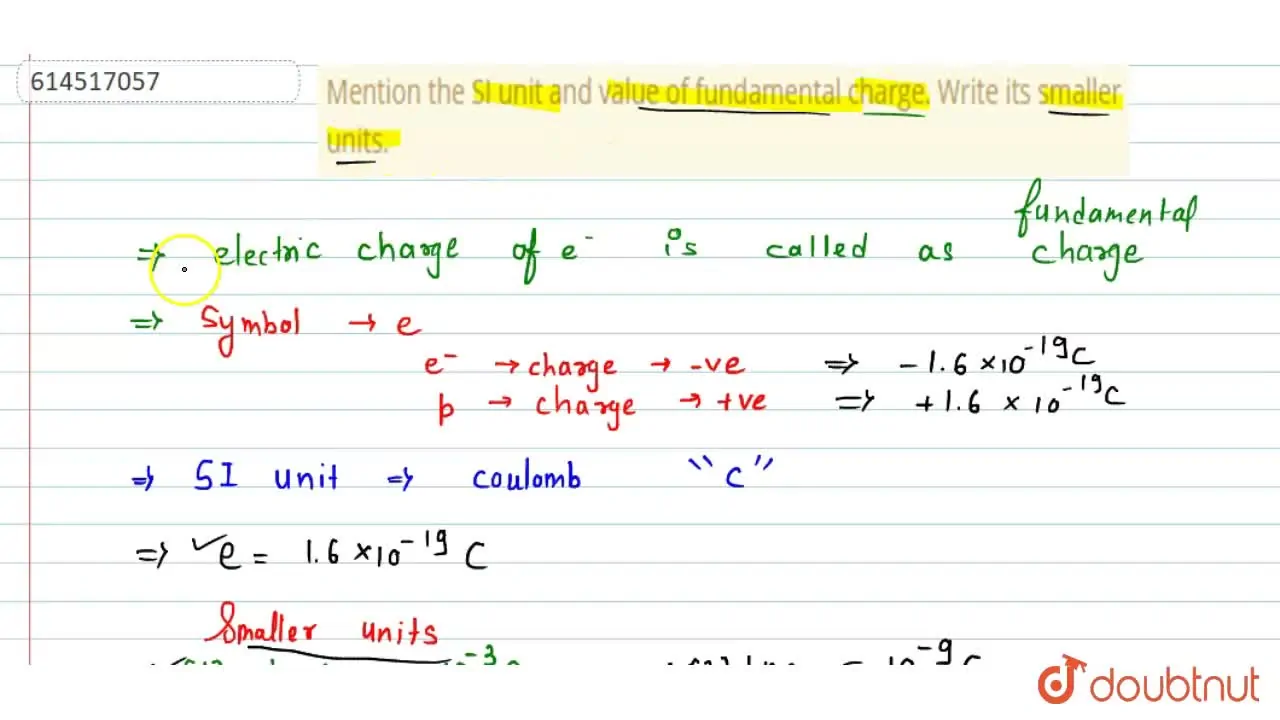 614517057
Mention the SI unit and value of fundamental charge. Write its smaller
units.
fundamental
⇒ electric charge of e⁻ is called as charge
⇒ Symbol → e
e⁻ → charge → -ve ⇒ - 1.6 × 10⁻¹⁹ C
p → charge → +ve ⇒ + 1.6 × 10⁻¹⁹ C
⇒ SI unit ⇒ coulomb "C"
⇒ ✓e = 1.6 × 10⁻¹⁹ C
Smaller units
10⁻³ = 10⁻⁹ C
doubtnut